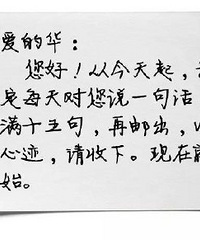 爱的华：
您好！从今天起，
定每天对您说一句话
满十五句，再邮出，以
心迹，请收下。现在就
始。